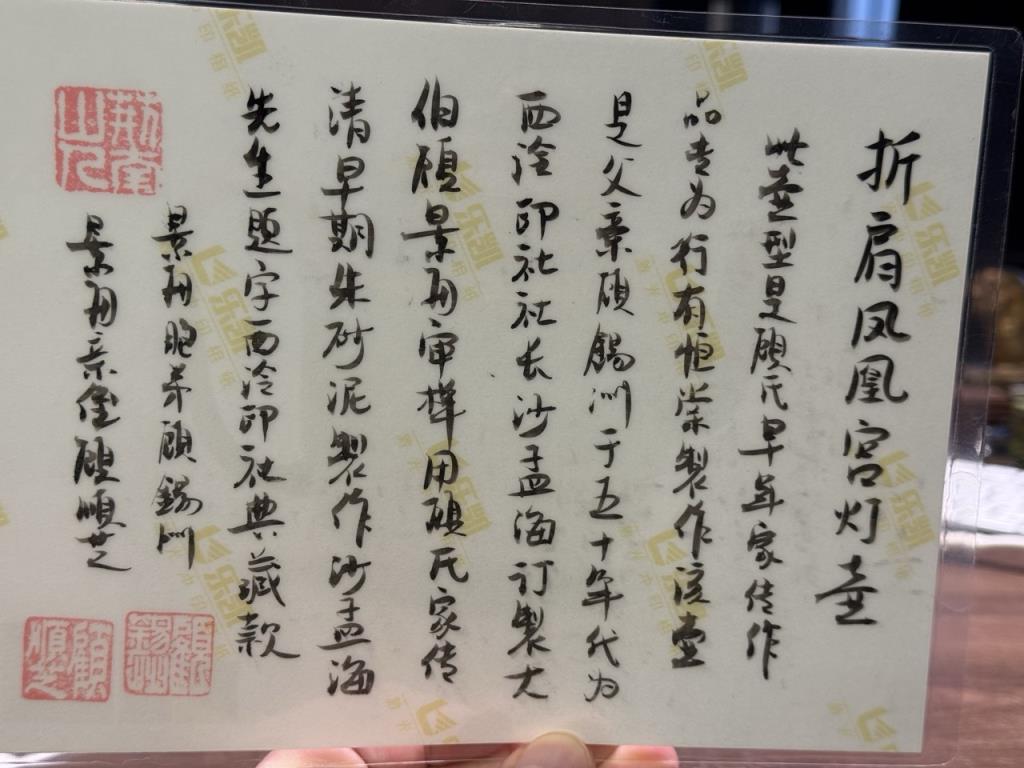 折肩凤凰宫灯壶
此壶型是顾氏早年家传作
品专为行有恒堂製作该壶
是父亲顾锡洲于五十年代为
西泠印社社长沙孟海订製大
伯顾景舟审样用顾氏家传
清早期朱砂泥製作沙孟海
先生题字西泠印社典藏款
景舟胞弟顾锡洲
景舟亲侄顾順芝
荆南山人
顧錫州
顧順芝
乐凯